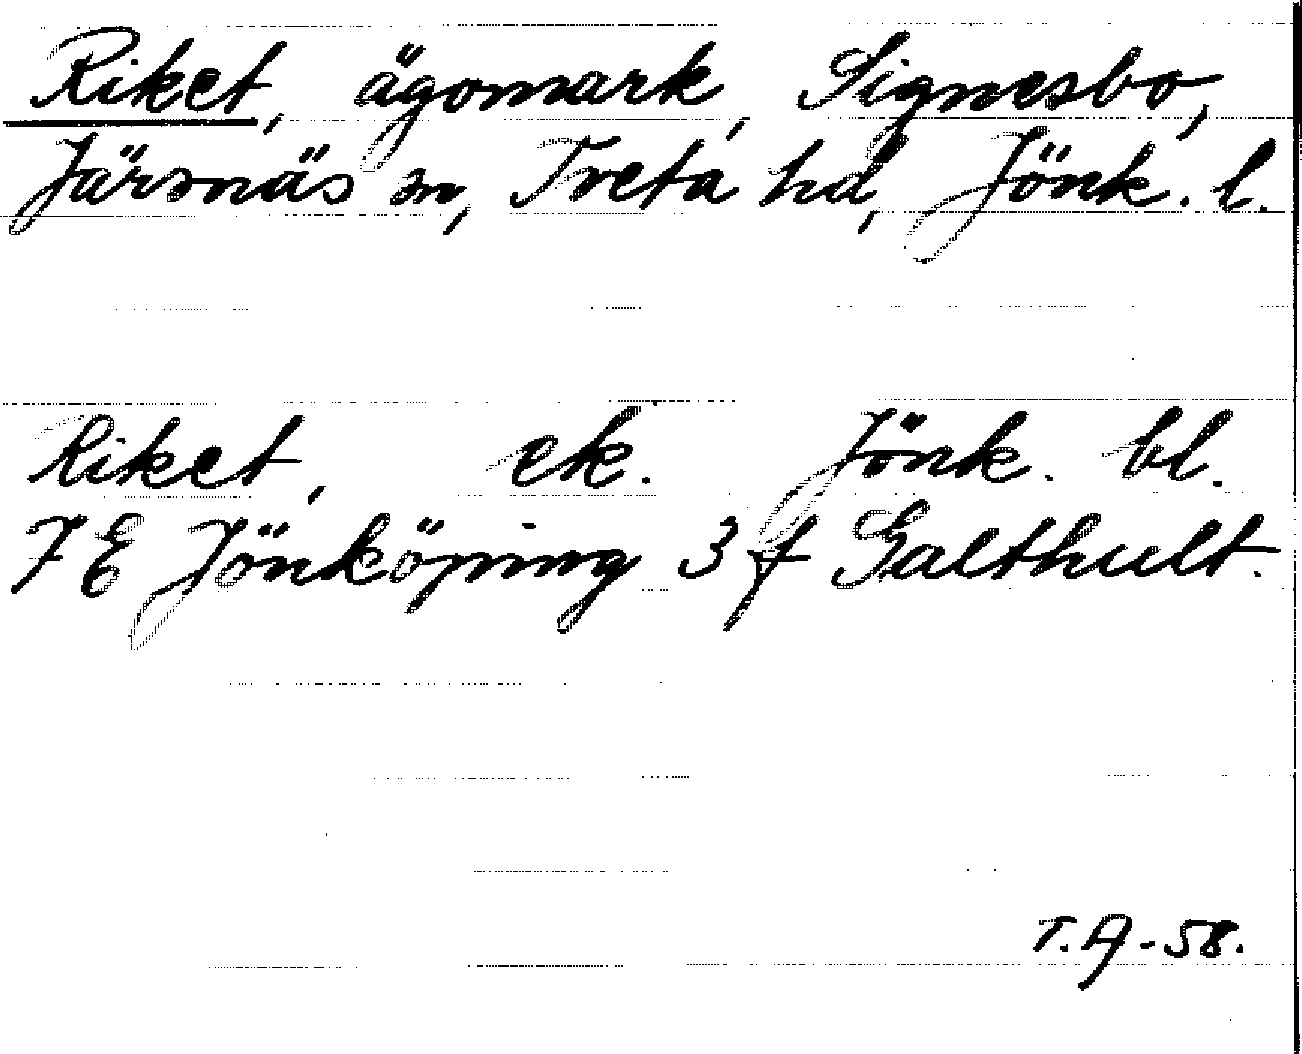 Riket, ägomark, Signesbo,
Järsnäs sn, Tveta hd, Jönk. l.
Riket, ek. Jönk. bl.
7 E Jönköping 3 f Galthult.
T.A-58.